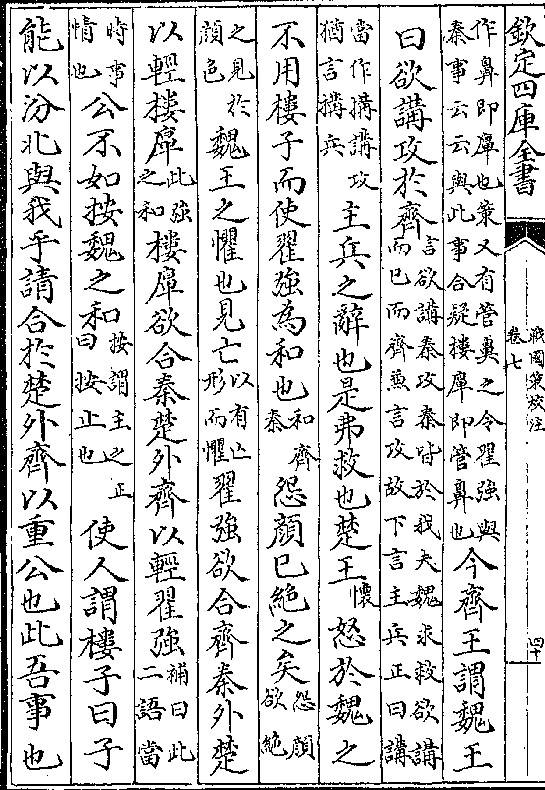 欽定四庫全書
戰國策校注
卷七
四十
作鼻即𢊁也策又有管鼻之令翟強與
秦事云云與此事合疑樓𢊁即管鼻也
今齊王謂魏王
曰欲講攻於齊
言欲講秦攻秦皆於我夫魏求救欲講
而已而齊兼言攻故下言主兵正曰講
當作搆講攻
猶言搆兵
主兵之辭也是弗救也楚王
懷
怒於魏之
不用樓子而使翟強為和也
和齊
秦
怨顔已絶之矣
怨顔
欲絶
之見於
顔色
魏王之懼也見亡
以有亡
形而懼
翟強欲合齊秦外楚
以輕樓𢊁
此強
之和
樓𢊁欲合秦楚外齊以輕翟強
補曰此
二語當
時事
情也
公不如按魏之和
按謂主之正
曰按止也
使人謂樓子曰子
能以汾北與我乎請合於楚外齊以重公也此吾事也